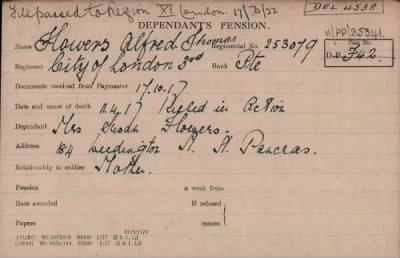 File passed to Region XI London 17/3/22
DEL 4538
DEPENDANT'S PENSION.
11/PP/35341.
Name Flowers Alfred Thomas Regimental No. 253079
Case No.
D.P. F42.
Regiment City of London 3rd Rank Pte
Documents received from Paymaster 17.10.17
Date and cause of death 11.4.17 Killed in Action
Dependant Mrs Susan Flowers.
Address 184 Luddington St. St Pancras.
Relationship to soldier Mother.
Pension a week from
Date awarded If refused
Papers reason